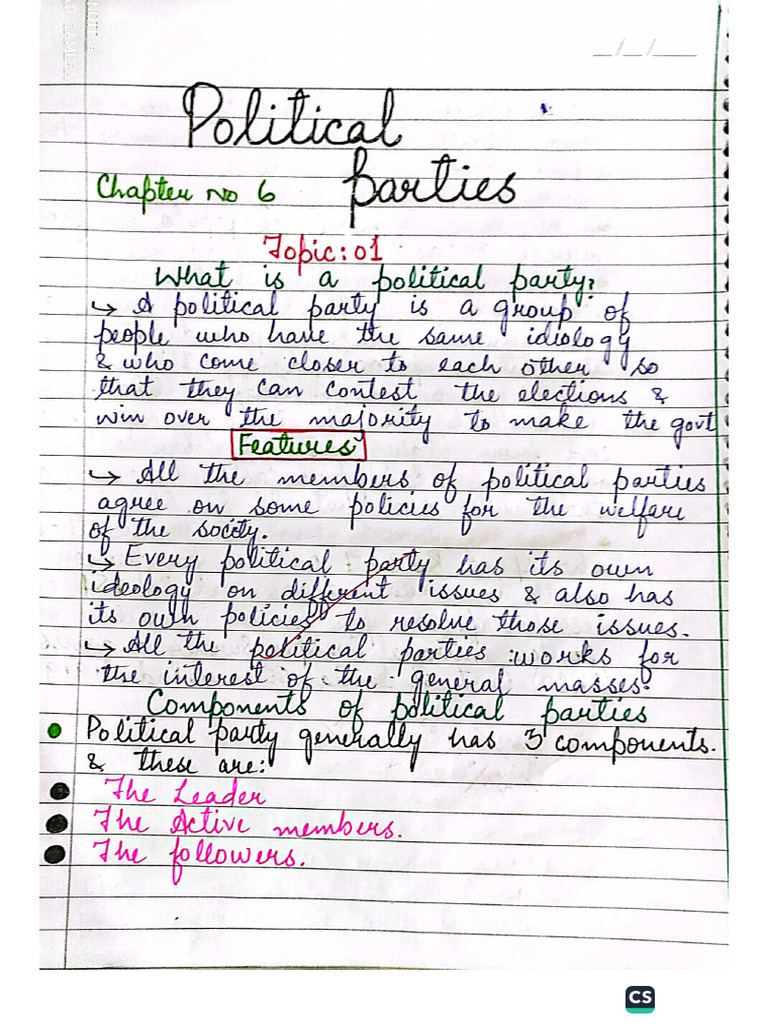 Political
parties
Chapter No 6
Topic: 01
What is a political party?
→ A political party is a group of
people who have the same idiology
& who come closer to each other so
that they can contest the elections &
win over the majority to make the govt
Features
→ All the members of political parties
agree on some policies for the welfare
of the socity.
→ Every political party has its own
ideology on different issues & also has
its own policies to resolve those issues.
→ All the political parties works for
the interest of the general masses.
Components of political parties
Political party generally has 3 components.
& these are:
The Leader
The Active members.
The followers.
CS